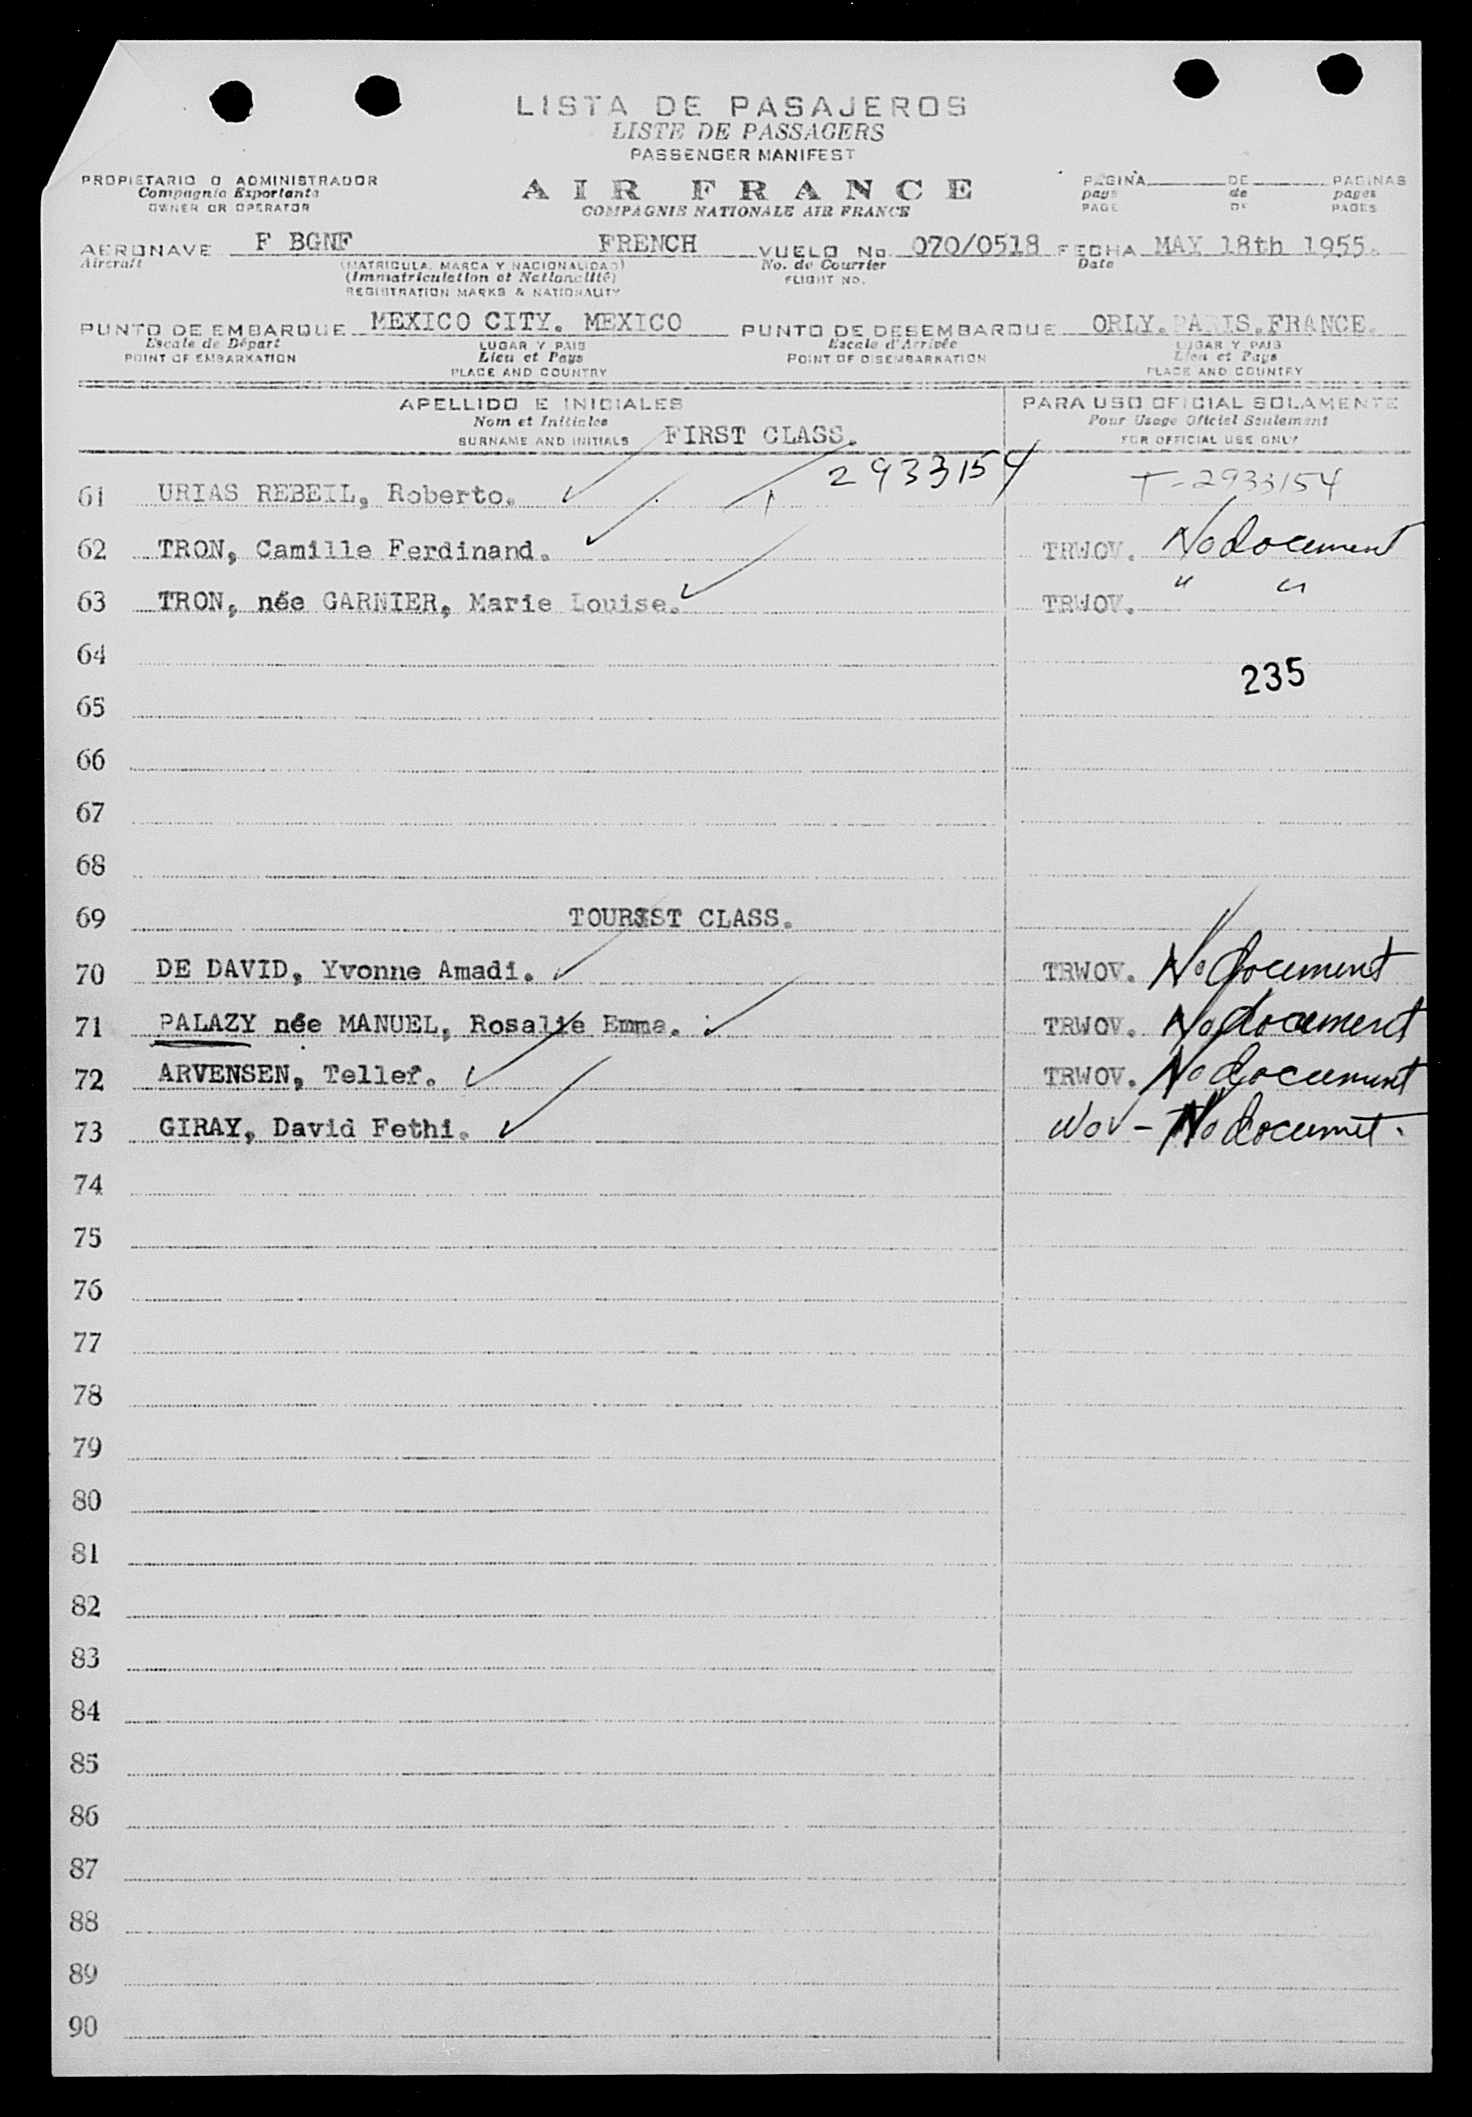 LISTA DE PASAJEROS
LISTE DE PASSAGERS
PASSENGER MANIFEST
PROPIETARIO O ADMINISTRADOR
Compagnie Exportante
OWNER OR OPERATOR
AIR FRANCE
COMPAGNIE NATIONALE AIR FRANCE
PAGINA DE PAGINAS
page de pages
PAGE OF PAGES
AERONAVE F BGNF FRENCH VUELO No. 070/0518 FECHA MAY 18th 1955.
Aircraft (MATRICULA, MARCA Y NACIONALIDAD) No. de Courrier Date
(Immatriculation et Nationalité) FLIGHT NO.
REGISTRATION MARKS & NATIONALITY
PUNTO DE EMBARQUE MEXICO CITY. MEXICO PUNTO DE DESEMBARQUE ORLY.PARIS.FRANCE.
Escale de Départ LUGAR Y PAIS Escale d'Arrivée LUGAR Y PAIS
POINT OF EMBARKATION Lieu et Pays POINT OF DISEMBARKATION Lieu et Pays
PLACE AND COUNTRY PLACE AND COUNTRY
APELLIDO E INICIALES PARA USO OFICIAL SOLAMENTE
Nom et Initiales Pour Usage Officiel Seulement
SURNAME AND INITIALS FIRST CLASS. FOR OFFICIAL USE ONLY
61 URIAS REBEIL, Roberto. 2933154 T-2933154
62 TRON, Camille Ferdinand. TRWOV. No document
63 TRON, née GARNIER, Marie Louise. TRWOV. " "
64
235
65
66
67
68
69 TOURIST CLASS.
70 DE DAVID, Yvonne Amadi. TRWOV. No document
71 PALAZY née MANUEL, Rosalie Emma. TRWOV. No document
72 ARVENSEN, Tellef. TRWOV. No document
73 GIRAY, David Fethi. WOV - No documet.
74
75
76
77
78
79
80
81
82
83
84
85
86
87
88
89
90